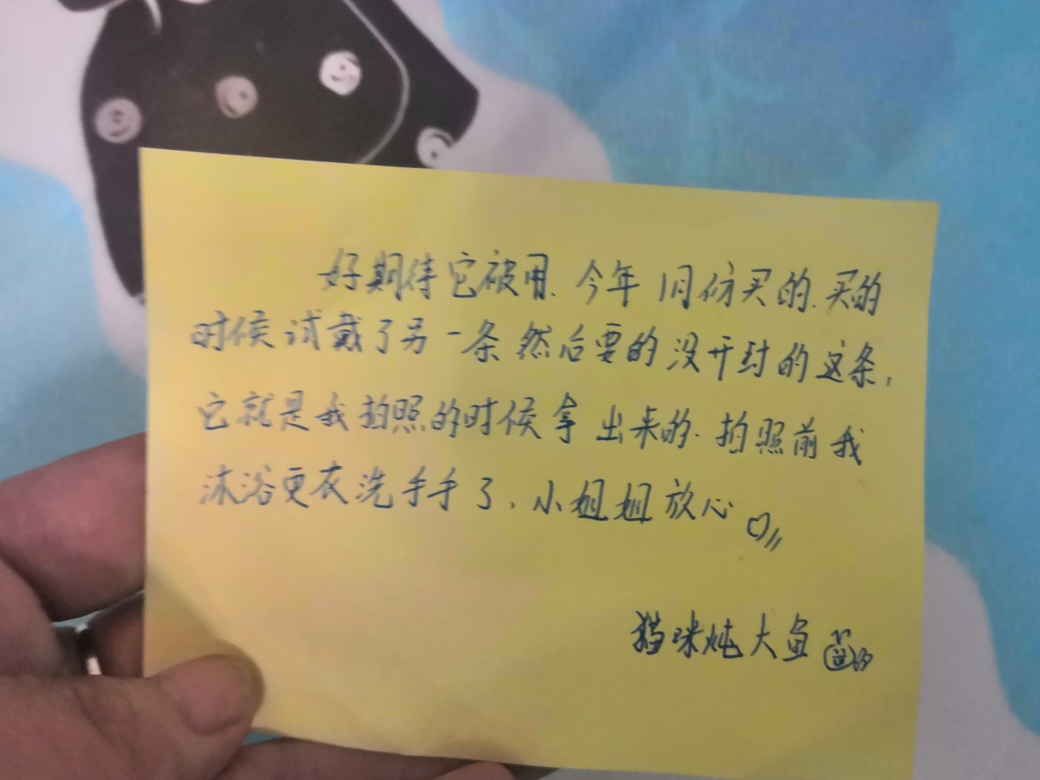 好期待它被用.今年1月份买的.买的
时候试戴了另一条然后要的没开封的这条,
它就是我拍照的时候拿出来的.拍照前我
沐浴更衣洗手手了,小姐姐放心
猫咪炖大鱼